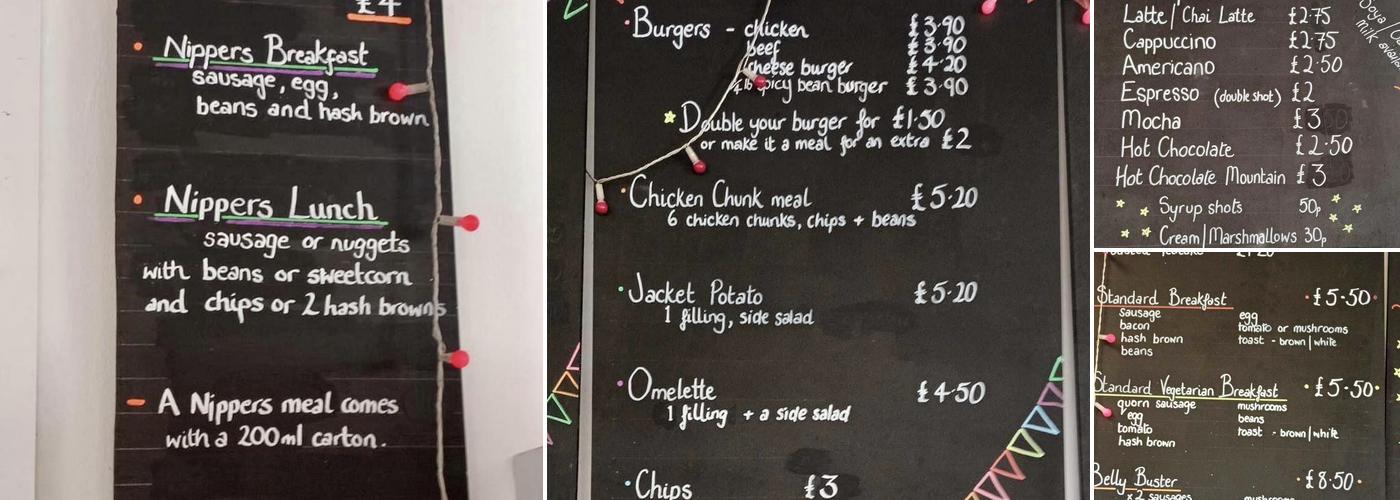 £4
Nippers Breakfast
sausage, egg,
beans and hash brown
Nippers Lunch
sausage or nuggets
with beans or sweetcorn
and chips or 2 hash browns
- A Nippers meal comes
with a 200ml carton.
Burgers - chicken £3.90
beef £3.90
cheese burger £4.20
spicy bean burger £3.90
Double your burger for £1.50
or make it a meal for an extra £2
Chicken Chunk meal £5.20
6 chicken chunks, chips + beans
Jacket Potato £5.20
1 filling, side salad
Omelette £4.50
1 filling + a side salad
Chips £3
Latte / Chai Latte £2.75
Cappuccino £2.75
Americano £2.50
Espresso (double shot) £2
Mocha £3
Hot Chocolate £2.50
Hot Chocolate Mountain £3
Syrup shots 50p
Cream/Marshmallows 30p
Soya
milk
Standard Breakfast £5.50
sausage egg
bacon tomato or mushrooms
hash brown toast - brown/white
beans
Standard Vegetarian Breakfast £5.50
quorn sausage mushrooms
egg beans
tomato toast - brown/white
hash brown
Belly Buster £8.50
x 2 sausages mushrooms